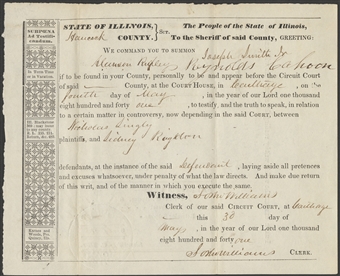 SUBPŒNA
Ad Testificandum.
STATE OF ILLINOIS,
Hancock COUNTY. } Sct.
The People of the State of Illinois,
To the Sheriff of said County, GREETING:
WE COMMAND YOU TO SUMMON Joseph Smith Jr
Reynolds Cahoon
if to be found in your County, personally to be and appear before the Circuit Court
of said — County, at the COURT HOUSE, in Carthage, on
fourth day of May, in the year of our Lord one thousand
eight hundred and forty one, to testify, and the truth to speak, in relation
to a certain matter in controversy, now depending in the said COURT, between
plaintiffs, and Sidney Rigdon
defendants, at the instance of the said Defendant, laying aside all pretences
and excuses whatsoever, under penalty of what the law directs. And make due return
of this writ, and of the manner in which you execute the same.
Witness,
Clerk of our said CIRCUIT COURT, at Carthage
— this 3d day of
May, in the year of our Lord one thousand
eight hundred and forty one.
CLERK.